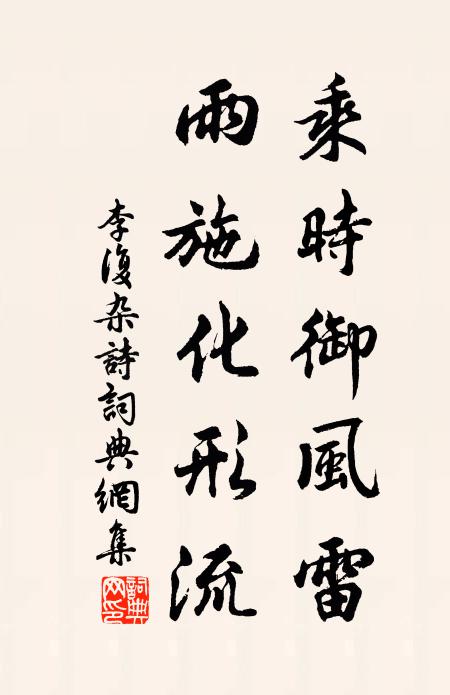 乘時御風雷
雨施化形流
李復杂詩詞典網集
詞典網印